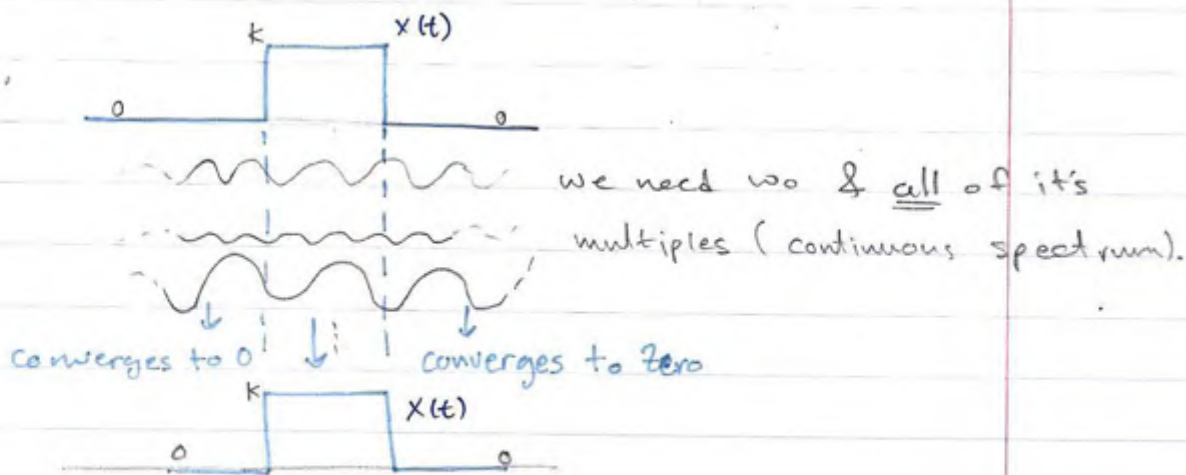 K x(t)
0 0
we need wo & all of it's
multiples (continuous spectrum).
converges to 0 converges to Zero
K x(t)
0 0